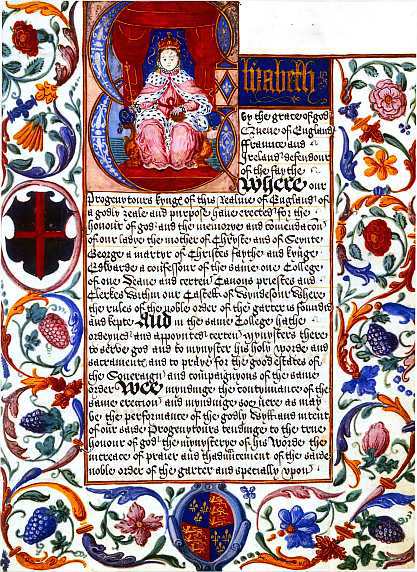 Elizabeth
by the grace of god
Quene of England
ffraunce and
Ireland defendour
of the faythe
Where our
Progenytours kynge of this Realme of England of
a godly zeale and purpose have erected for the
honour of god and the memorye and comendacon
of our ladye the mother of Chryste and of Seynte
George a martyr of Christes faythe and kynge
Edwarde a confessour of the same one College
of one Deane and certen Canons priestes and
Clerkes within our Castell of Wyndesour Where
the rules of the noble order of the garter is founded
and kepte And in the same College hathe
ordeyned and appoynted certen mynysters there
to serve god and to mynyster his holy worde and
sacramente and to praye for the good estates of
the Soveraign and compaignyons of the same
order Wee myndinge the contynuance of the
same erection and myndinge soe here as may
be the performance of the godly Wyll and intent
of our saide Progenytours tendinge to the true
honour of god the mynysterye of his Worde the
increace of praier and thadmicement of the saide
noble order of the garter and specially upon